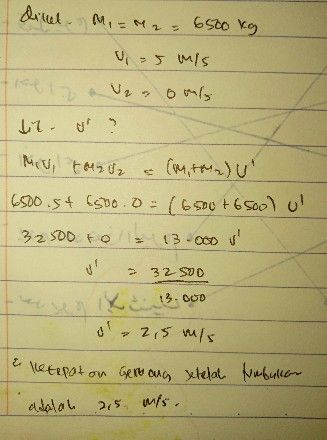 Diket - M₁ = M₂ = 6500 kg
V₁ = 5 m/s
V₂ = 0 m/s
v' ?
M₁V₁ + M₂V₂ = (M₁+M₂) U'
6500.5 + 6500.0 = (6500 + 6500) U'
32500 + 0 = 13.000 v'
v' = 32500
13.000
v' = 2,5 m/s
kecepatan gerbong setelah tumbukan
adalah 2,5 m/s.